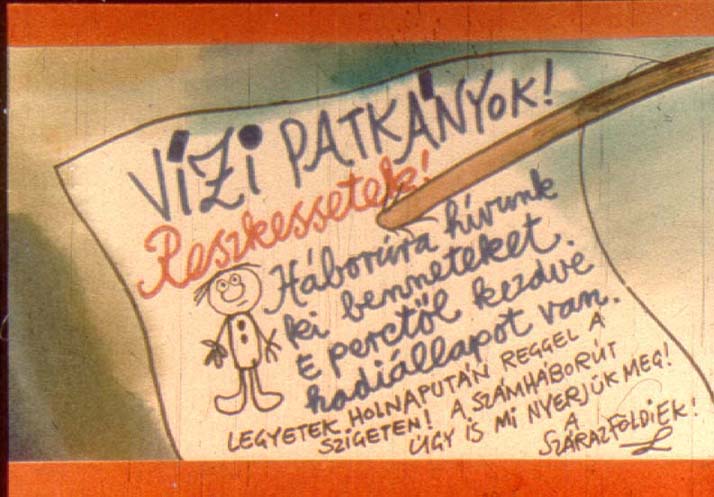 VÍZI PATKÁNYOK!
Reszkessetek!
Háborúra hívunk
ki benneteket.
E perctől kezdve
hadiállapot van.
LEGYETEK HOLNAPUTÁN REGGEL A
SZIGETEN! A SZÁMHÁBORÚT
ÚGY IS MI NYERJÜK MEG!
A
SZÁRAZFÖLDIEK!